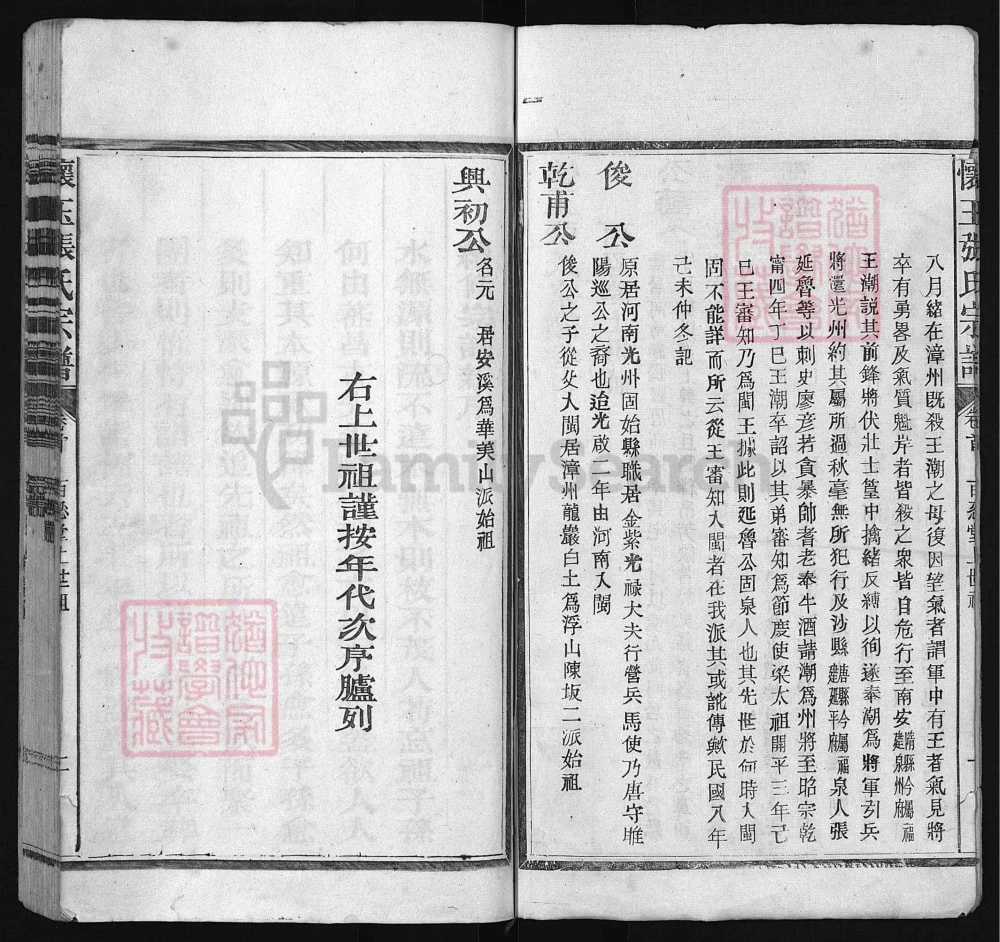 懷玉張氏宗譜
卷首
百忍堂上世祖
八月緒在漳州既殺王潮之母復因望氣者謂軍中有王者氣見將
卒有勇畧及氣質魁岸者皆殺之衆皆自危行至南安
王潮説其前鋒將伏壯士篁中擒緒反縛以徇遂奉潮爲將軍引兵
將還光州約其屬所過秋毫無所犯行及沙縣 泉人張
延魯等以刺史廖彦若貪暴帥耆老奉牛酒請潮爲州將至昭宗乾
甯四年丁巳王潮卒詔以其弟審知爲節度使梁太祖開平三年己
巳王審知乃爲閩王據此則延魯公固泉人也其先世於何時入閩
固不能詳而所云從王審知入閩者在我派其或訛傳歟民國八年
己未仲冬記
俊公
原居河南光州固始縣職居金紫光禄大夫行營兵馬使乃唐守睢
陽巡公之裔也迨光啟二年由河南入閩
乾甫公
俊公之子從父入閩居漳州龍巖白土爲浮山陳坂二派始祖
興初公
名元 居安溪爲華美山派始祖
右上世祖謹按年代次序臚列
懷玉張氏宗譜
卷首
百忍堂上世祖
二
FamilySearch